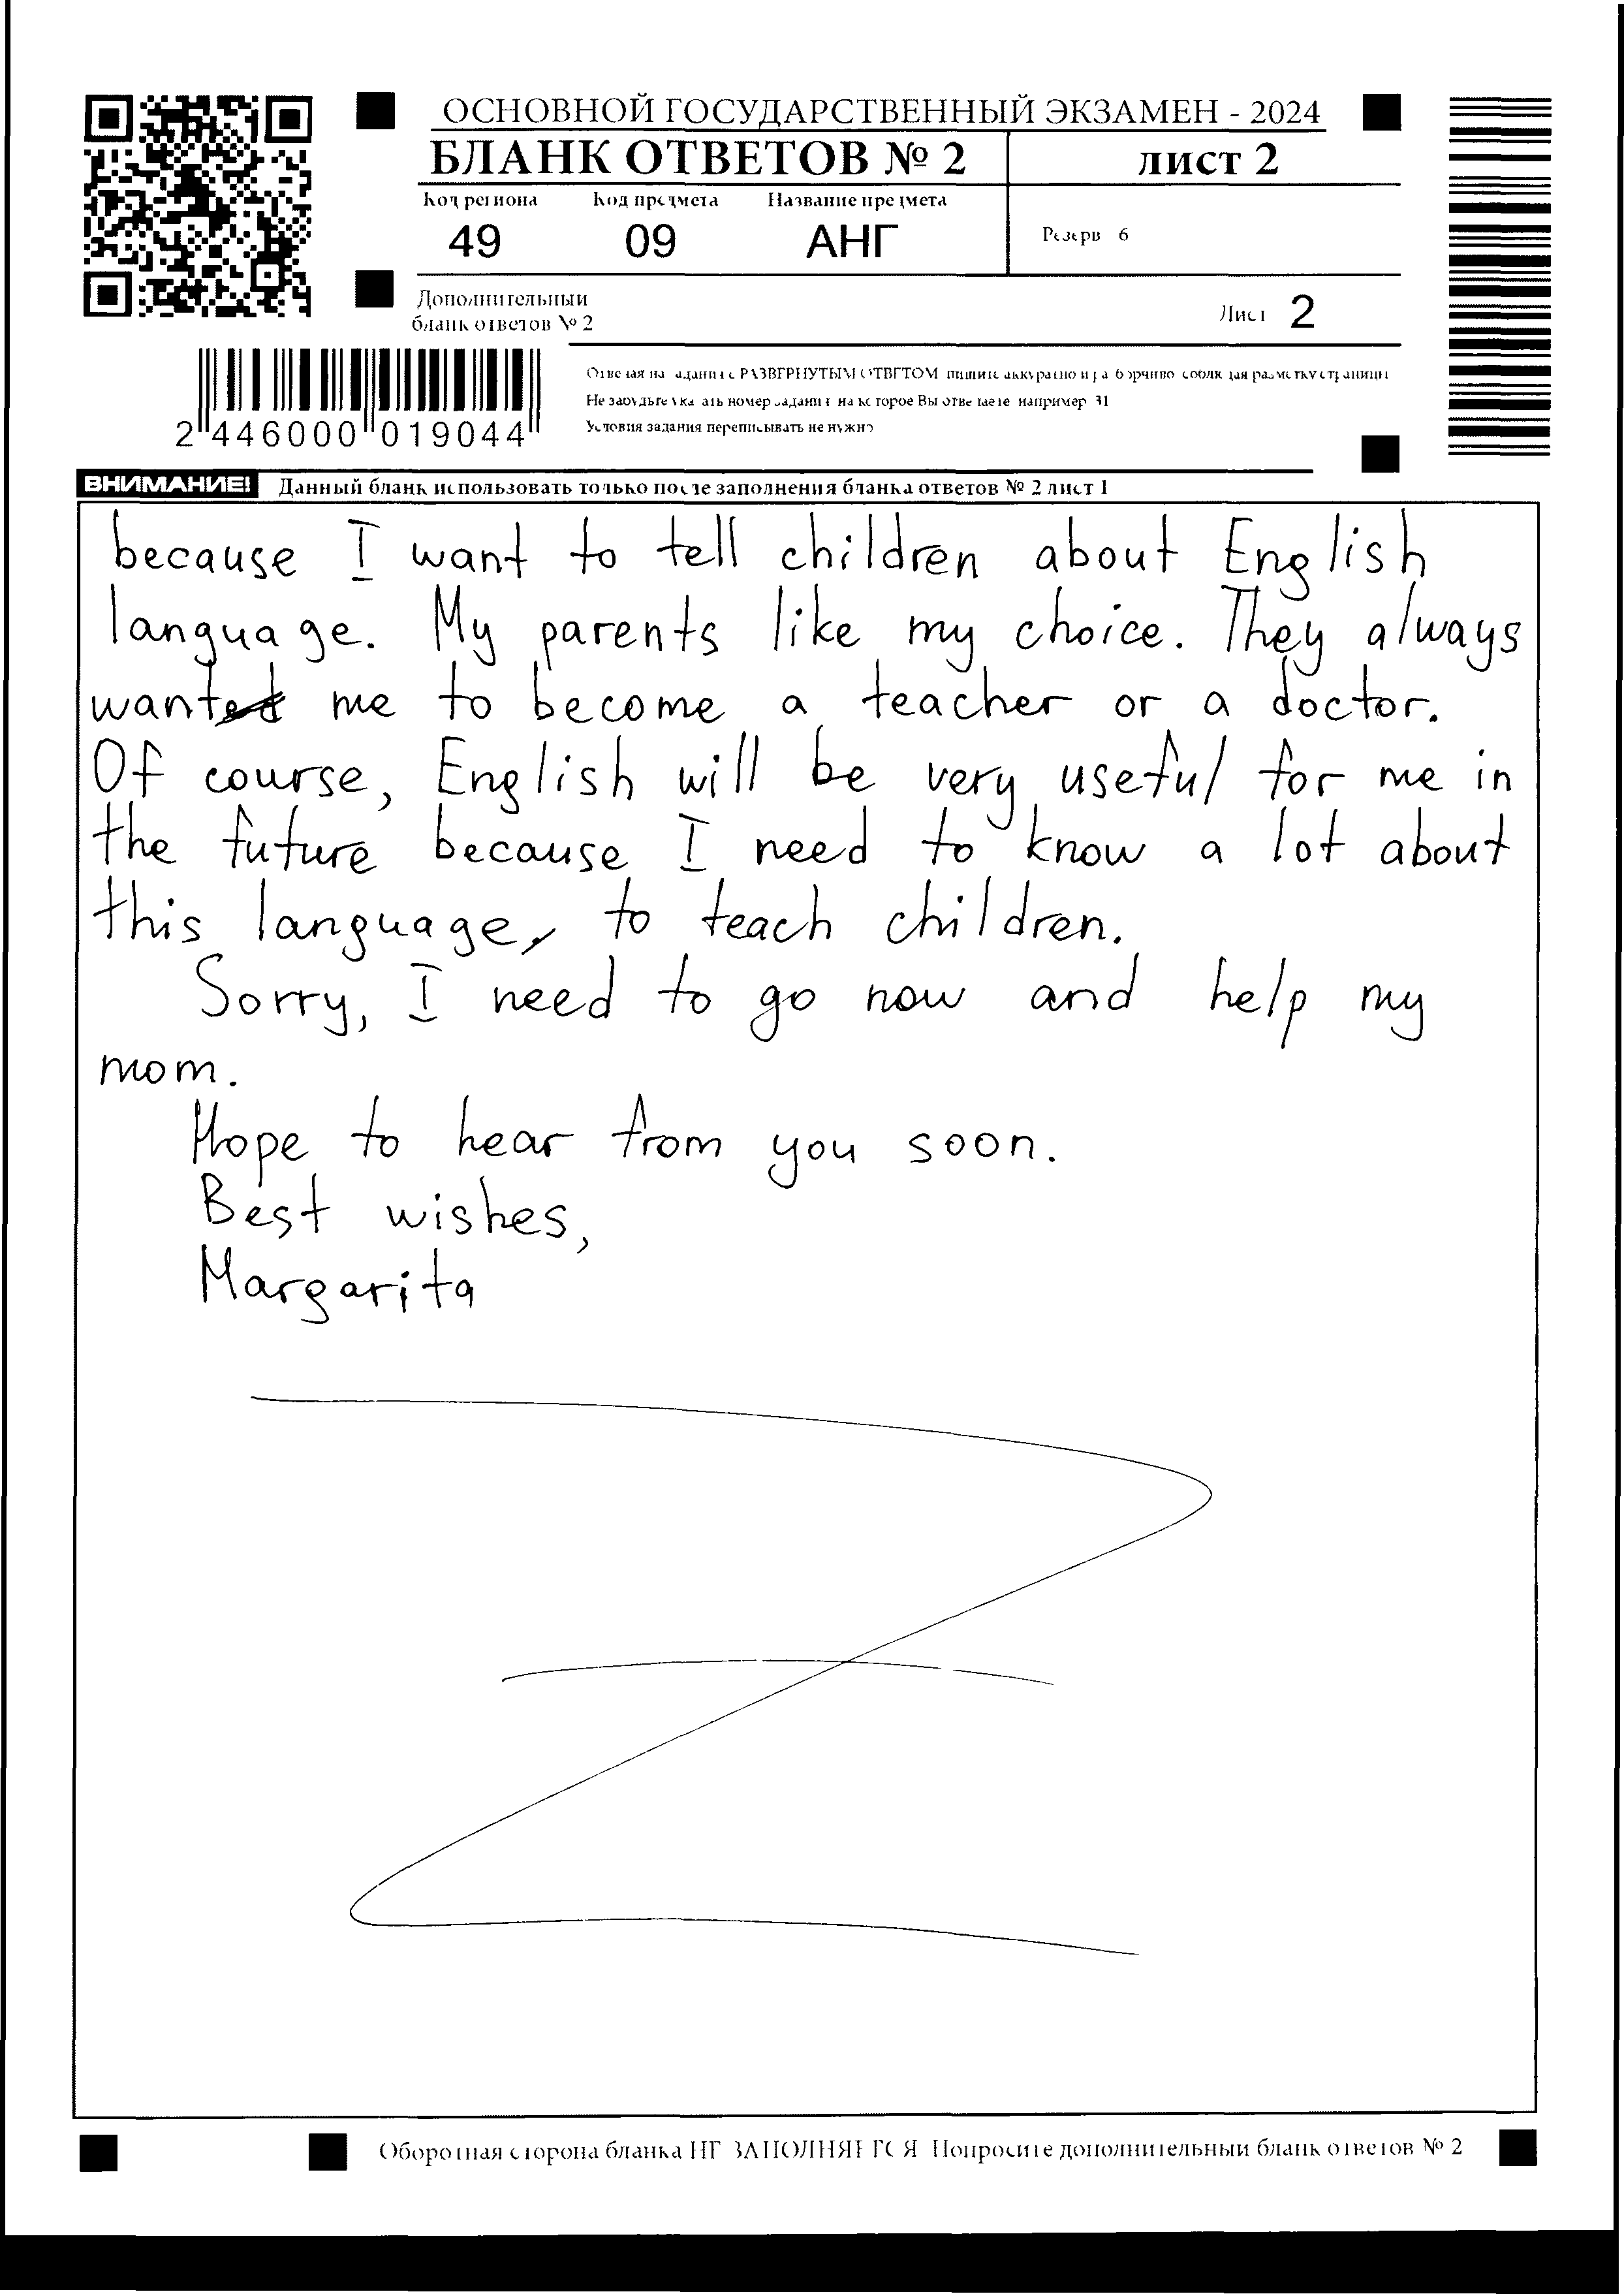 ОСНОВНОЙ ГОСУДАРСТВЕННЫЙ ЭКЗАМЕН - 2024
БЛАНК ОТВЕТОВ № 2 лист 2
Код региона Код предмета Название предмета
49 09 АНГ Резерв 6
Дополнительный
бланк ответов № 2 Лист 2
Отвечая на задания с РАЗВЕРНУТЫМ ОТВЕТОМ пишите аккуратно и разборчиво соблюдая разметку страницы
Не забудьте указать номер задания на которое Вы отвечаете например 31
Условия задания переписывать не нужно
2 446000 019044
ВНИМАНИЕ! Данный бланк использовать только после заполнения бланка ответов № 2 лист 1
because I want to tell children about English
language. My parents like my choice. They always
want me to become a teacher or a doctor.
Of course, English will be very useful for me in
the future because I need to know a lot about
this language to teach children.
Sorry, I need to go now and help my
mom.
Hope to hear from you soon.
Best wishes,
Margarita
Оборотная сторона бланка НЕ ЗАПОЛНЯЕТСЯ Попросите дополнительный бланк ответов № 2